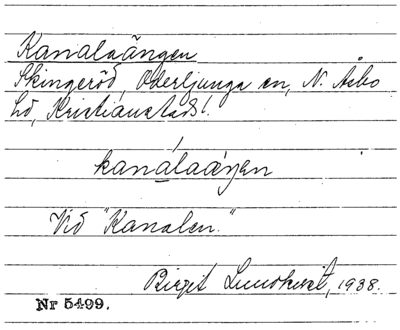 Kanalaängen
Skingeröd, Oderljunga sn, N. Åsbo
hd, Kristianstads l.
kanálaäŋen
Vid "Kanalen."
Birgit Lundkvist, 1938.
Nr 5499.